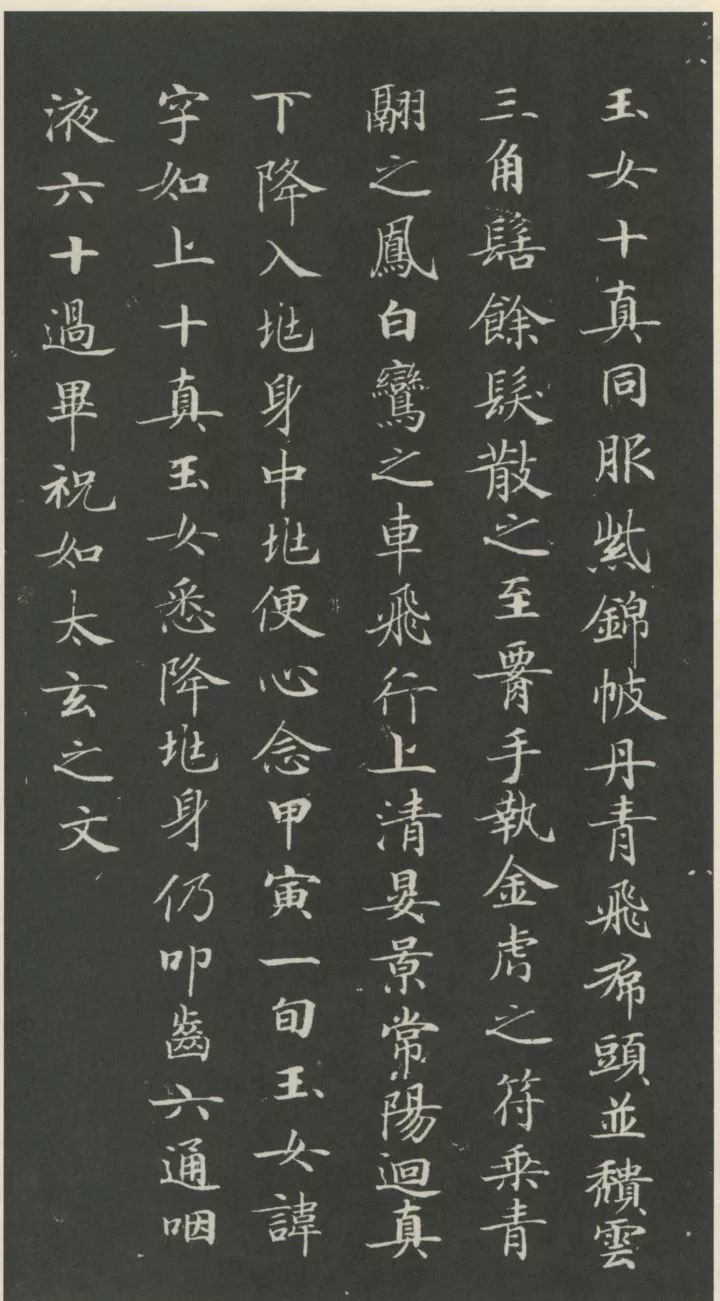 玉女十真同服紫錦帔丹青飛帬頭並穨雲
三角髻餘髮散之至䙅手執金虎之符乗青
翮之鳳白鸞之車飛行上清晏景常陽迴真
下降入㘴身中㘴便心念甲寅一旬玉女諱
字如上十真玉女悉降㘴身仍叩齒六通咽
液六十過畢祝如太玄之文